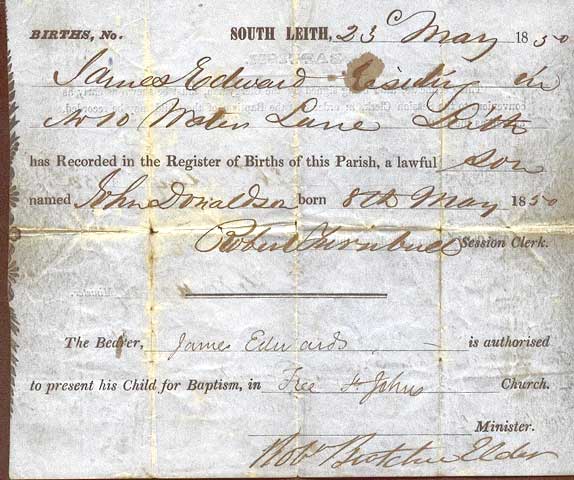 BIRTHS, No. SOUTH LEITH, 23d May 1850
James Edward residing in
No 10 Waters Lane Leith
has Recorded in the Register of Births of this Parish, a lawful Son
named John Donaldson born 8th May 1850
Robert Turnbull Session Clerk.
The Bearer, James Edwards is authorised
to present his Child for Baptism, in Free St Johns Church.
Minister.
Robt Elder